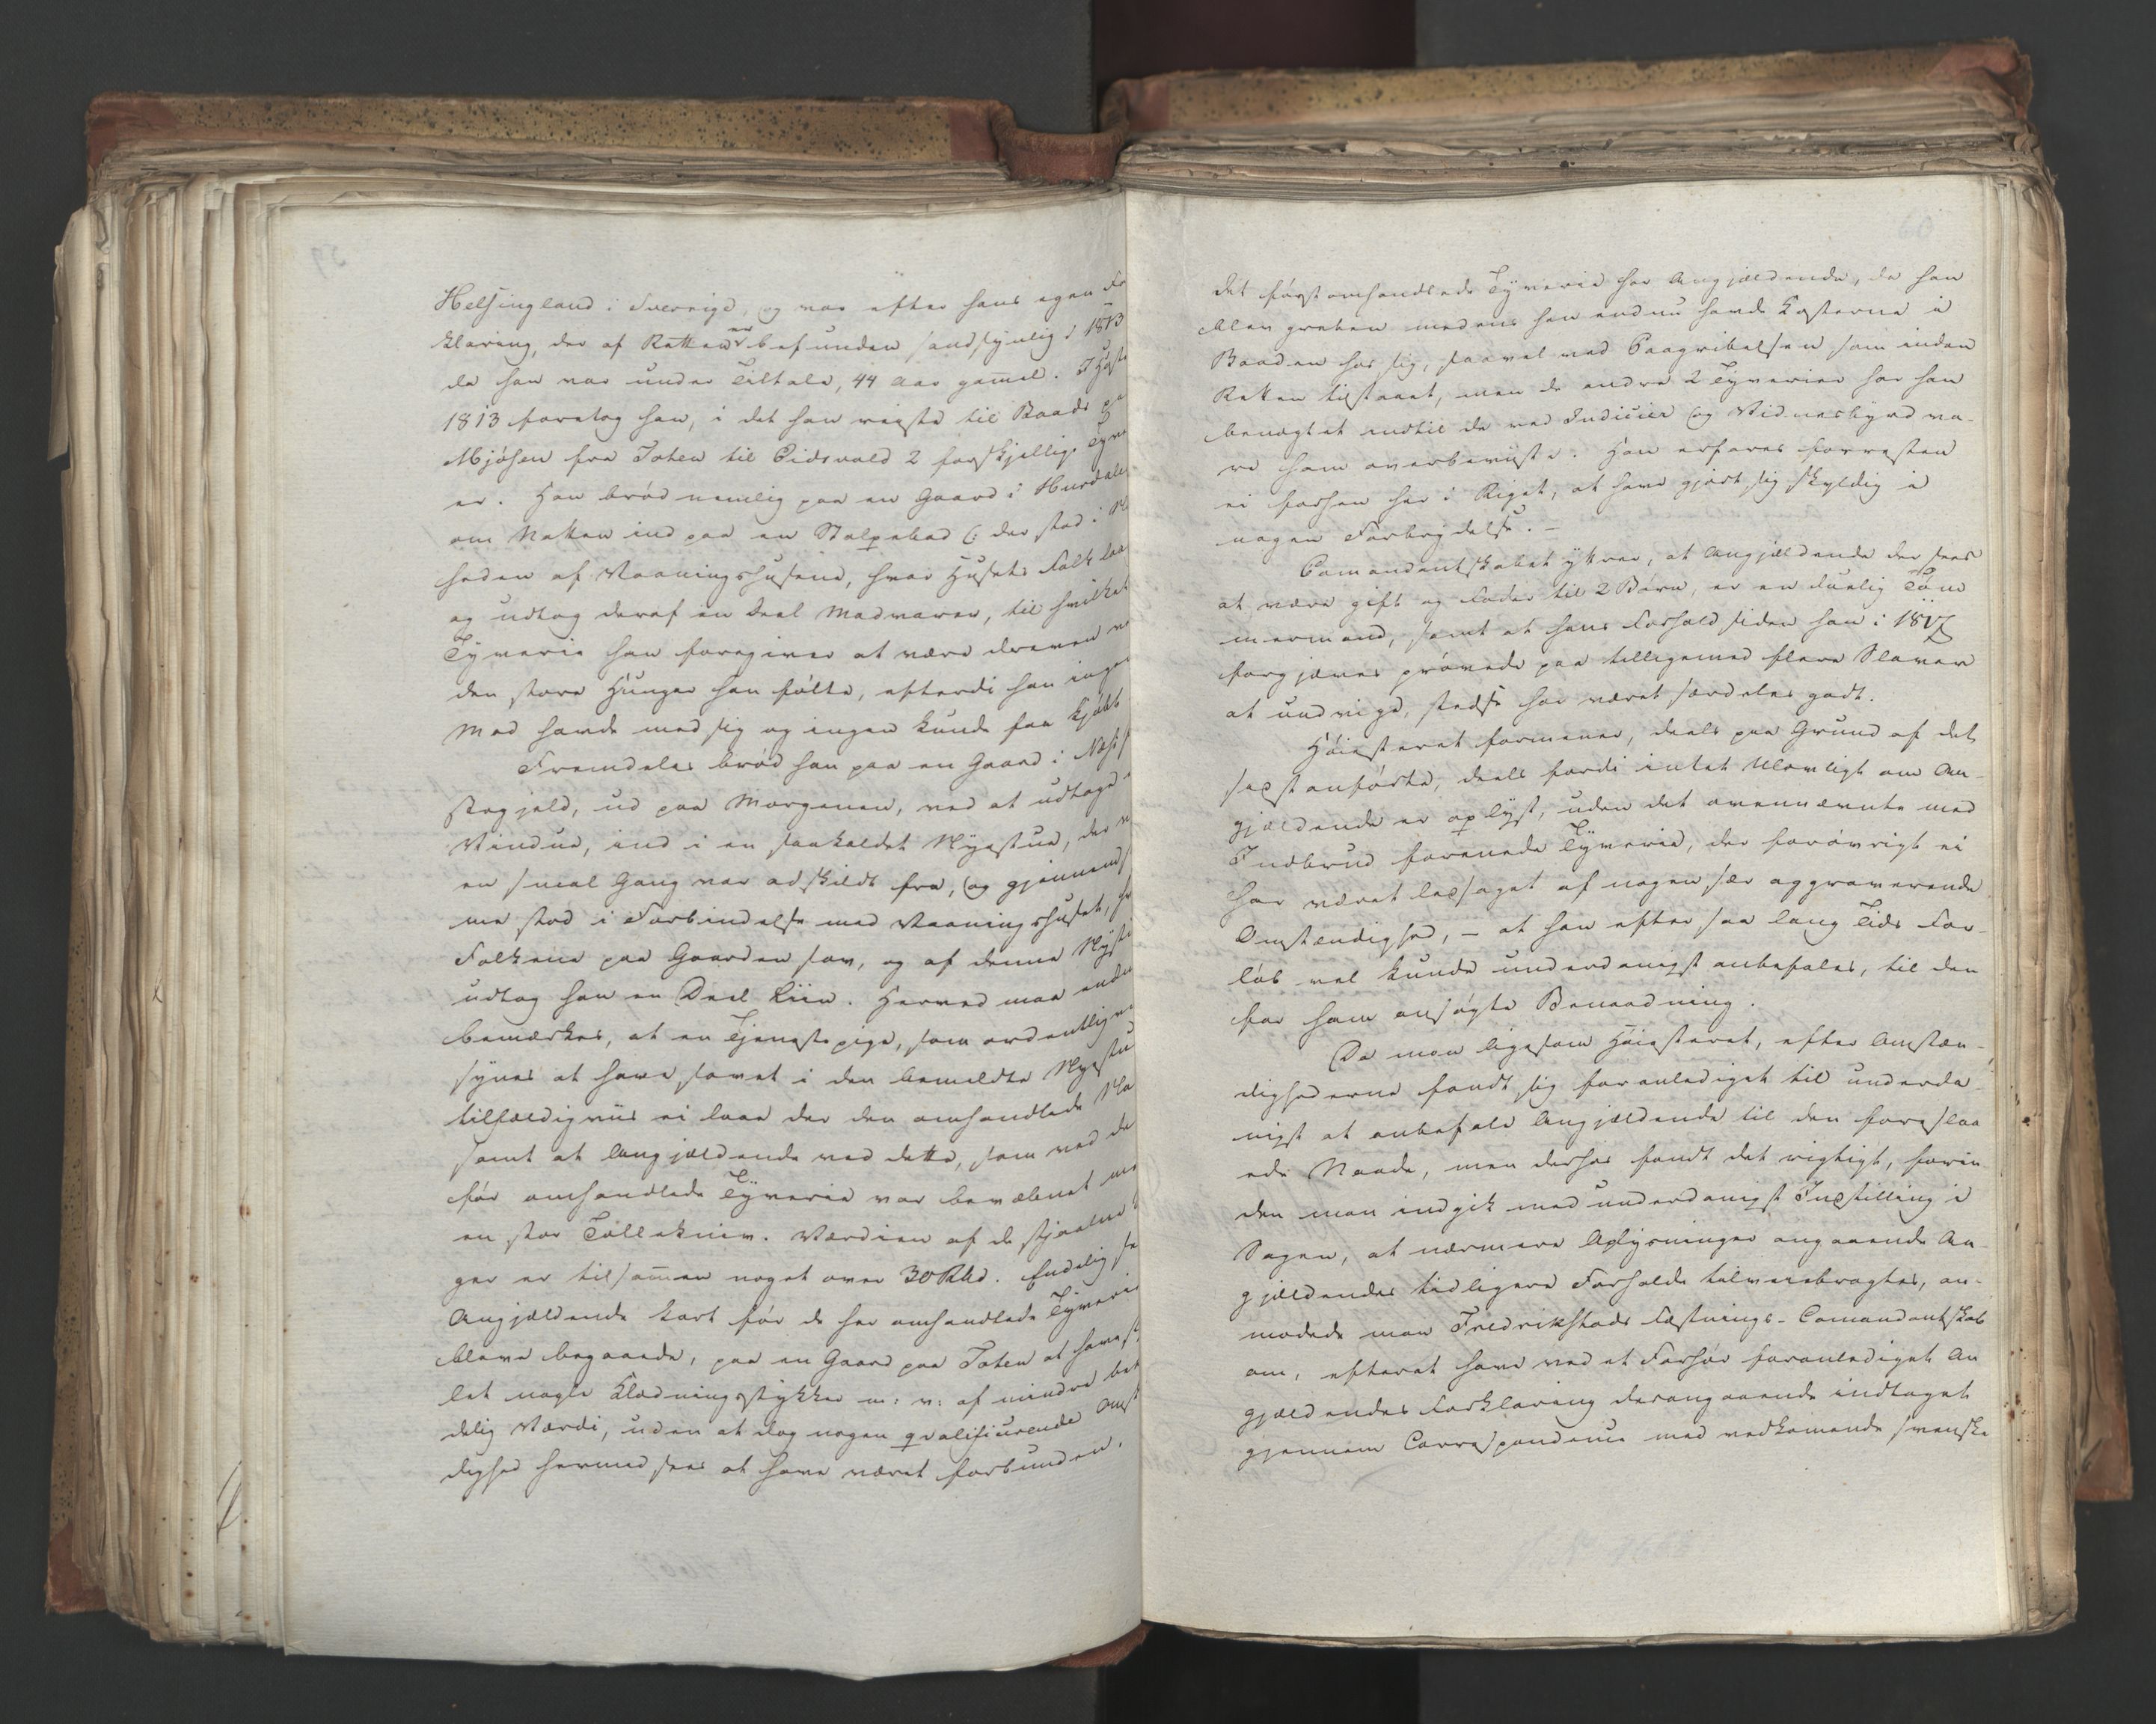 Helsingland i Sverrige, og var efter hans egen For
klaring, der af Retten er befunden sandsynlig i 1813
da han var under Tiltale, 44 Aar gamel. I Høste
1813 foretog han, i det han reiste til Baads pa
Mjøsen fra Toten til Eidsvold 2 forskjellige Tyve
er. Han brød nemlig paa en Gaard i Hurdale
om Natten ind paa en Stolpebod (: der stod i Næ
heden af Vaaningshusene, hvor Husets Folk laa
og udtog deraf en Deel Madvarer, til hvilket
Tyverie han foregiver at være dreven ve
den store Hunger han følte, efterdi han ingen
Mad havde med sig og ingen kunde faa kjøbt
Fremdeles brød han paa en Gaard i Næs P
stegjeld, ud paa Morgenen, ved at udtage
Vindue, ind i en saakaldet Nyestue, der v
en smal Gang var adskildt fra, og gjennem d
ne stod i Forbindelse med Vaaningshuset, hv
Folkene paa Gaarden sov, og af denne Nyest
udtog han en Deel Liin. Herved maa endnu
bemærkes, at en Tjenestepige, som ordentligvi
synes at have sovet i den bemeldte Nyestu
tilfældigviis ei laae der den omhandlede Na
samt at Angjældende ved dette, som ved de
før omhandlede Tyverie var bevæbnet me
en stor Tollekniv. Værdien af de stjaalne
ger er tilsamen noget over 30 Rbd. Endelig se
Angjældende kort før de her omhandlede Tyverie
bleve begaaede, paa en Gaard paa Toten at have st
let nogle Klædningsstykker m: v: af mindre bet
delig Værdi, uden at dog nogen qvalificerende Omst
dighed hermed sees at have været forbunden.
60
Det førstomhandlede Tyverie har Angjældende, da han
blev greben medens han endnu havde Kosterne i
Baaden hos sig, saavel ved Paagribelsen som inden
Retten tilstaaet, men de andre 2 Tyverier har han
benægtet indtil de ved Indicier og Vidnesbyrd va-
re ham overbeviiste. Han erfares forresten
ei forhen her i Riget, at have gjort sig skyldig i
nogen Forbrydelse. —
Comandantskabet yttrer, at Angjældende der sees
at være gift og Fader til 2 Børn, er en duelig Tøm
mermand, samt at hans Forhold siden han i 1817
forgjæves prøvede paa tilligemed flere Slaver
at undvige, stedse har været særdeles godt.
Høiesteret formener, deels paa Grund af det
sidstanførte, deels fordi intet Ulovligt om An-
gjældende er oplyst, uden det ovennævnte med
Indbrud forenede Tyverie, der forøvrigt ei
har været ledsaget af nogen sær aggraverende
Omstændighed, — at han efter saa lang Tids For-
løb vel kunde underdanigst anbefales, til den
for ham ansøgte Benaadning.
Da man ligesom Høiesteret, efter Omstæn-
dighederne fandt sig foranlediget til underda
nigst at anbefale Angjældende til den foreslaa
ede Naade, men derhos fandt det rigtigt, forin
den man indgik med underdanigst Indstilling i
Sagen, at nærmere Oplysninger angaaende An-
gjældendes tidligere Forholde tilveiebragtes, an-
modede man Fredrikstads Fæstnings-Comandantskab
om, efterat have ved et Forhør foranlediget An
gjældendes Forklaring desangaaende indtaget
gjennem Correspondence med vedkomende svenske